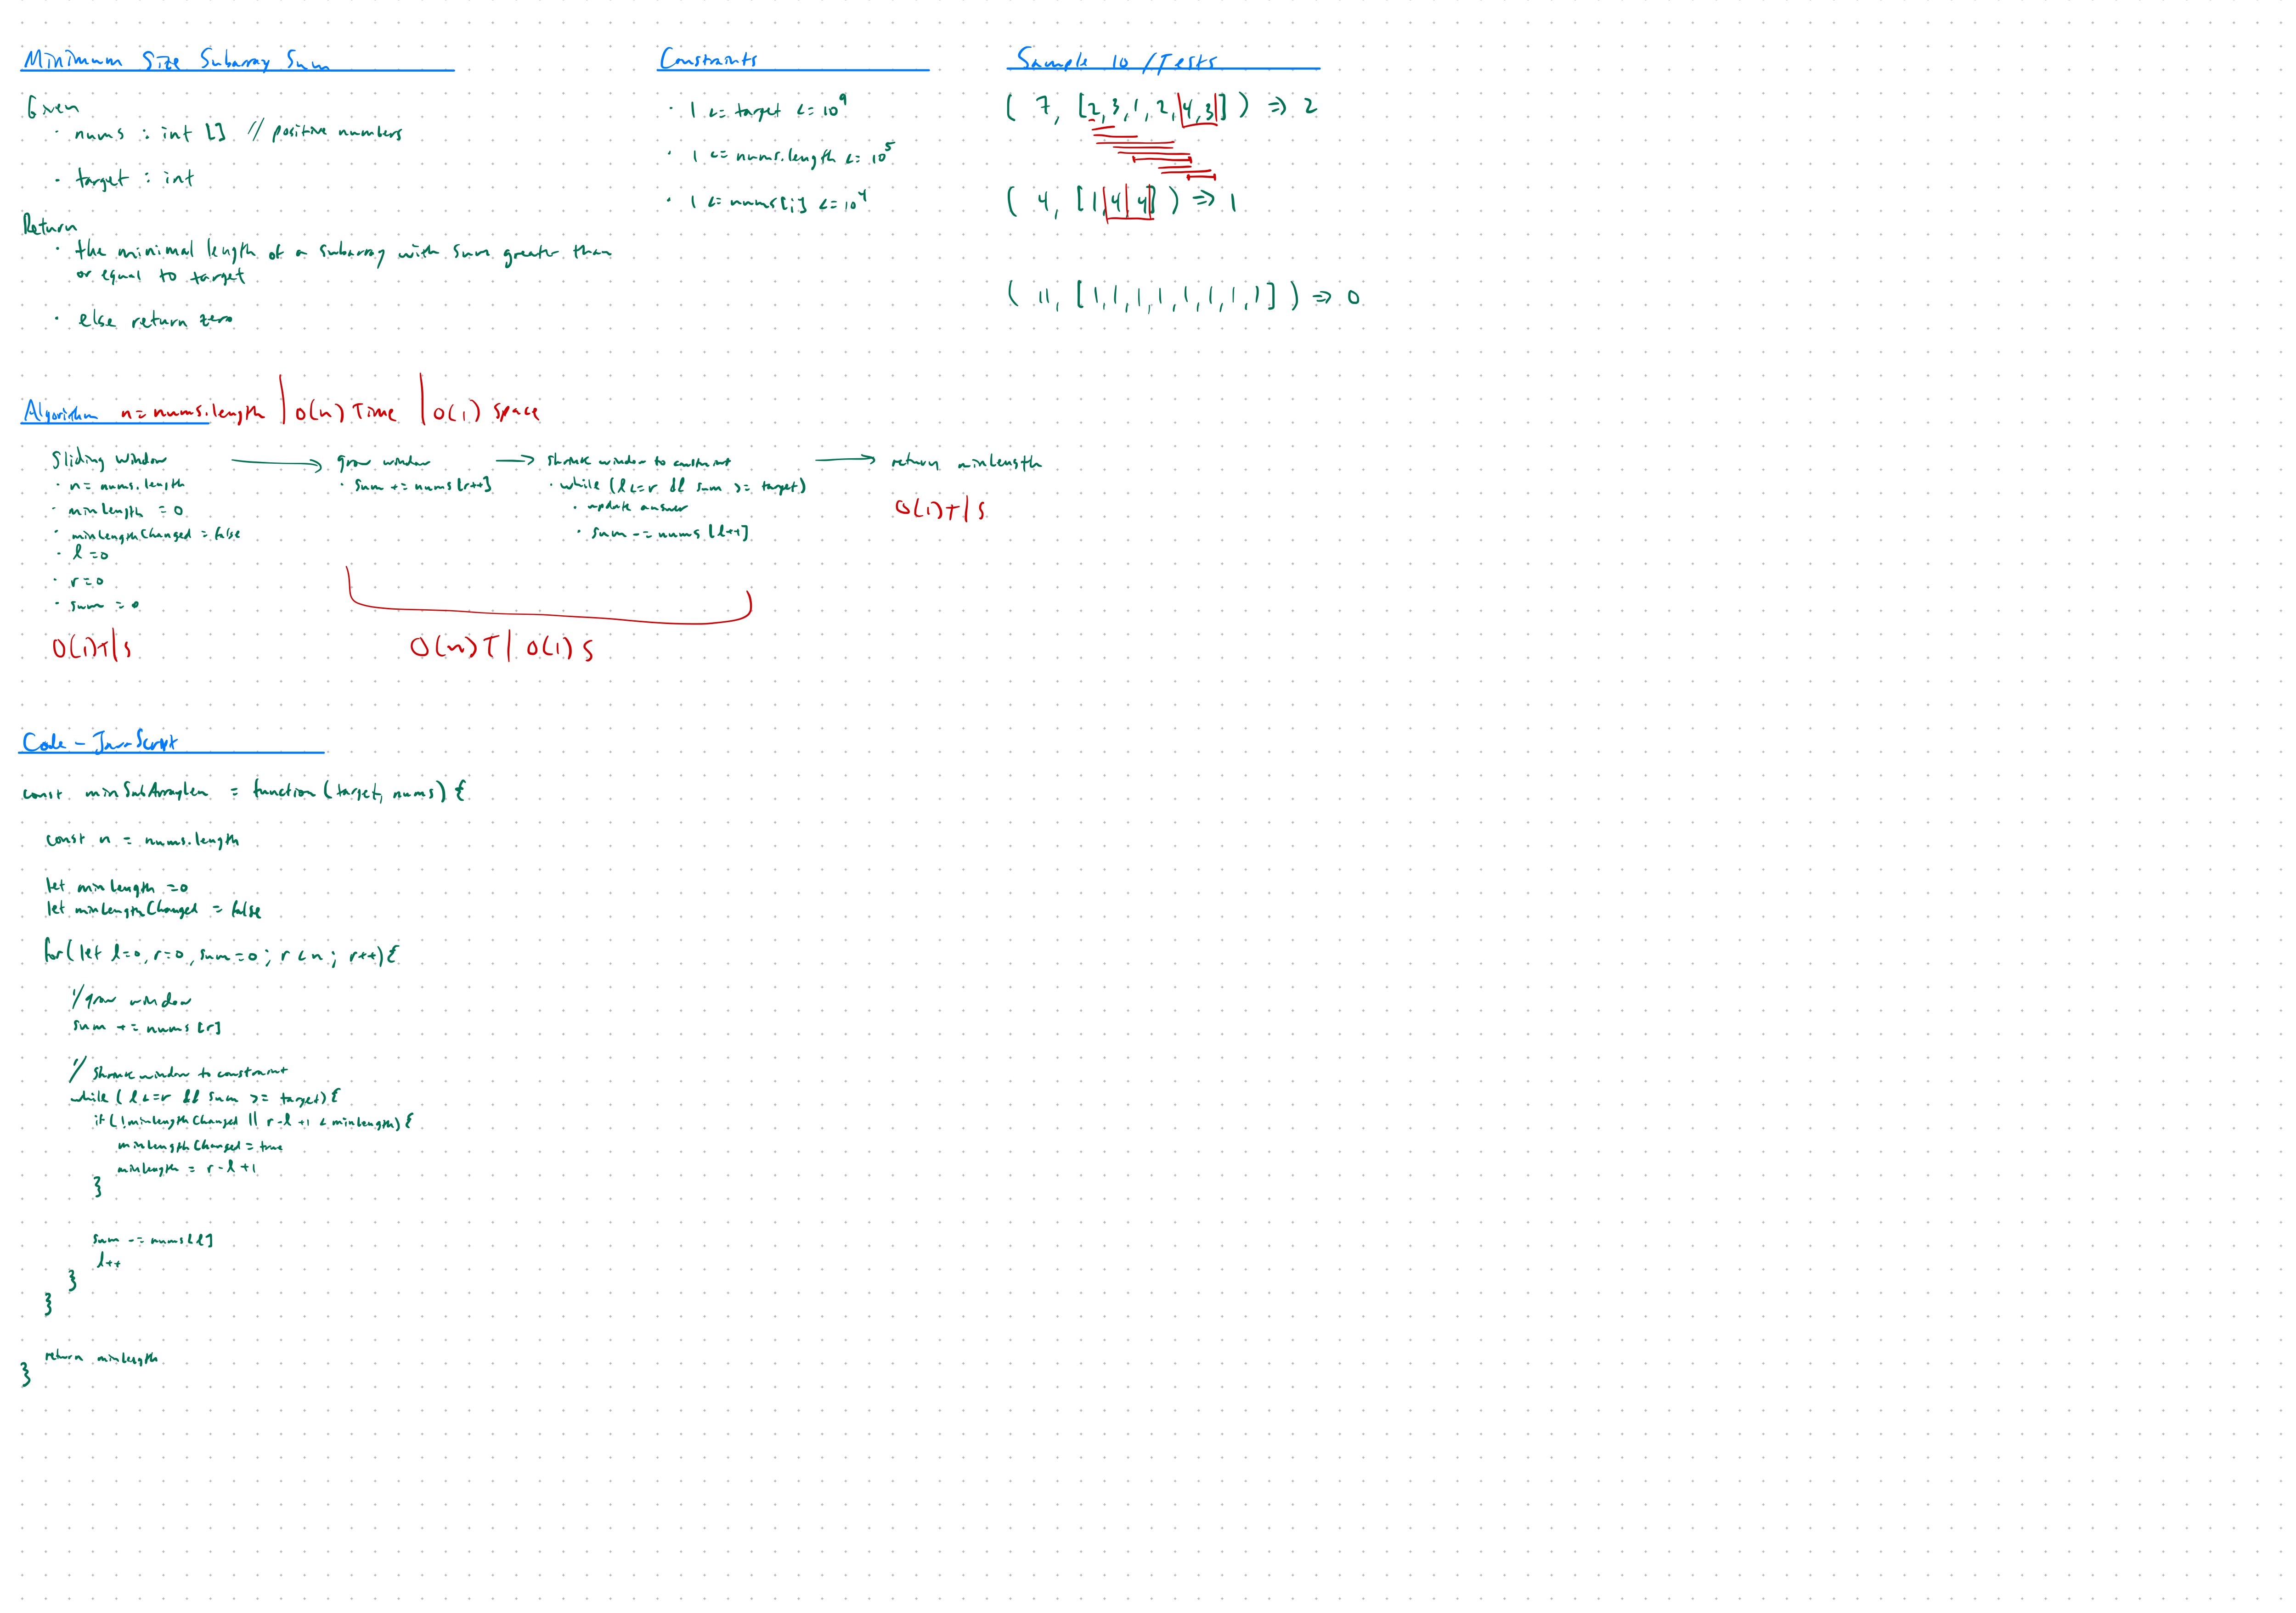 Minimum Size Subarray Sum
Given
· nums : int [] // positive numbers
· target : int
Return
· the minimal length of a subarray with sum greater than
or equal to target
· else return zero
Constraints
· 1 <= target <= 10^9
· 1 <= nums.length <= 10^5
· 1 <= nums[i] <= 10^4
Sample IO / Tests
( 7, [2,3,1,2,4,3] ) => 2
( 4, [1,4,4] ) => 1
( 11, [1,1,1,1,1,1,1,1] ) => 0
Algorithm n = nums.length | O(n) Time | O(1) Space
Sliding Window
· n = nums.length
· minLength = 0
· minLengthChanged = false
· l = 0
· r = 0
· sum = 0
O(1)T|S
grow window
· sum += nums[r++]
shrink window to constraint
· while (l <= r && sum >= target)
· update answer
· sum -= nums[l++]
O(n)T | O(1)S
return minLength
O(1)T|S
Code - JavaScript
const minSubArrayLen = function(target, nums) {
const n = nums.length
let minLength = 0
let minLengthChanged = false
for(let l=0, r=0, sum=0; r < n; r++){
// grow window
sum += nums[r]
// Shrink window to constraint
while (l <= r && sum >= target){
if (!minLengthChanged || r-l+1 < minLength){
minLengthChanged = true
minLength = r-l+1
}
sum -= nums[l]
l++
}
}
return minLength
}